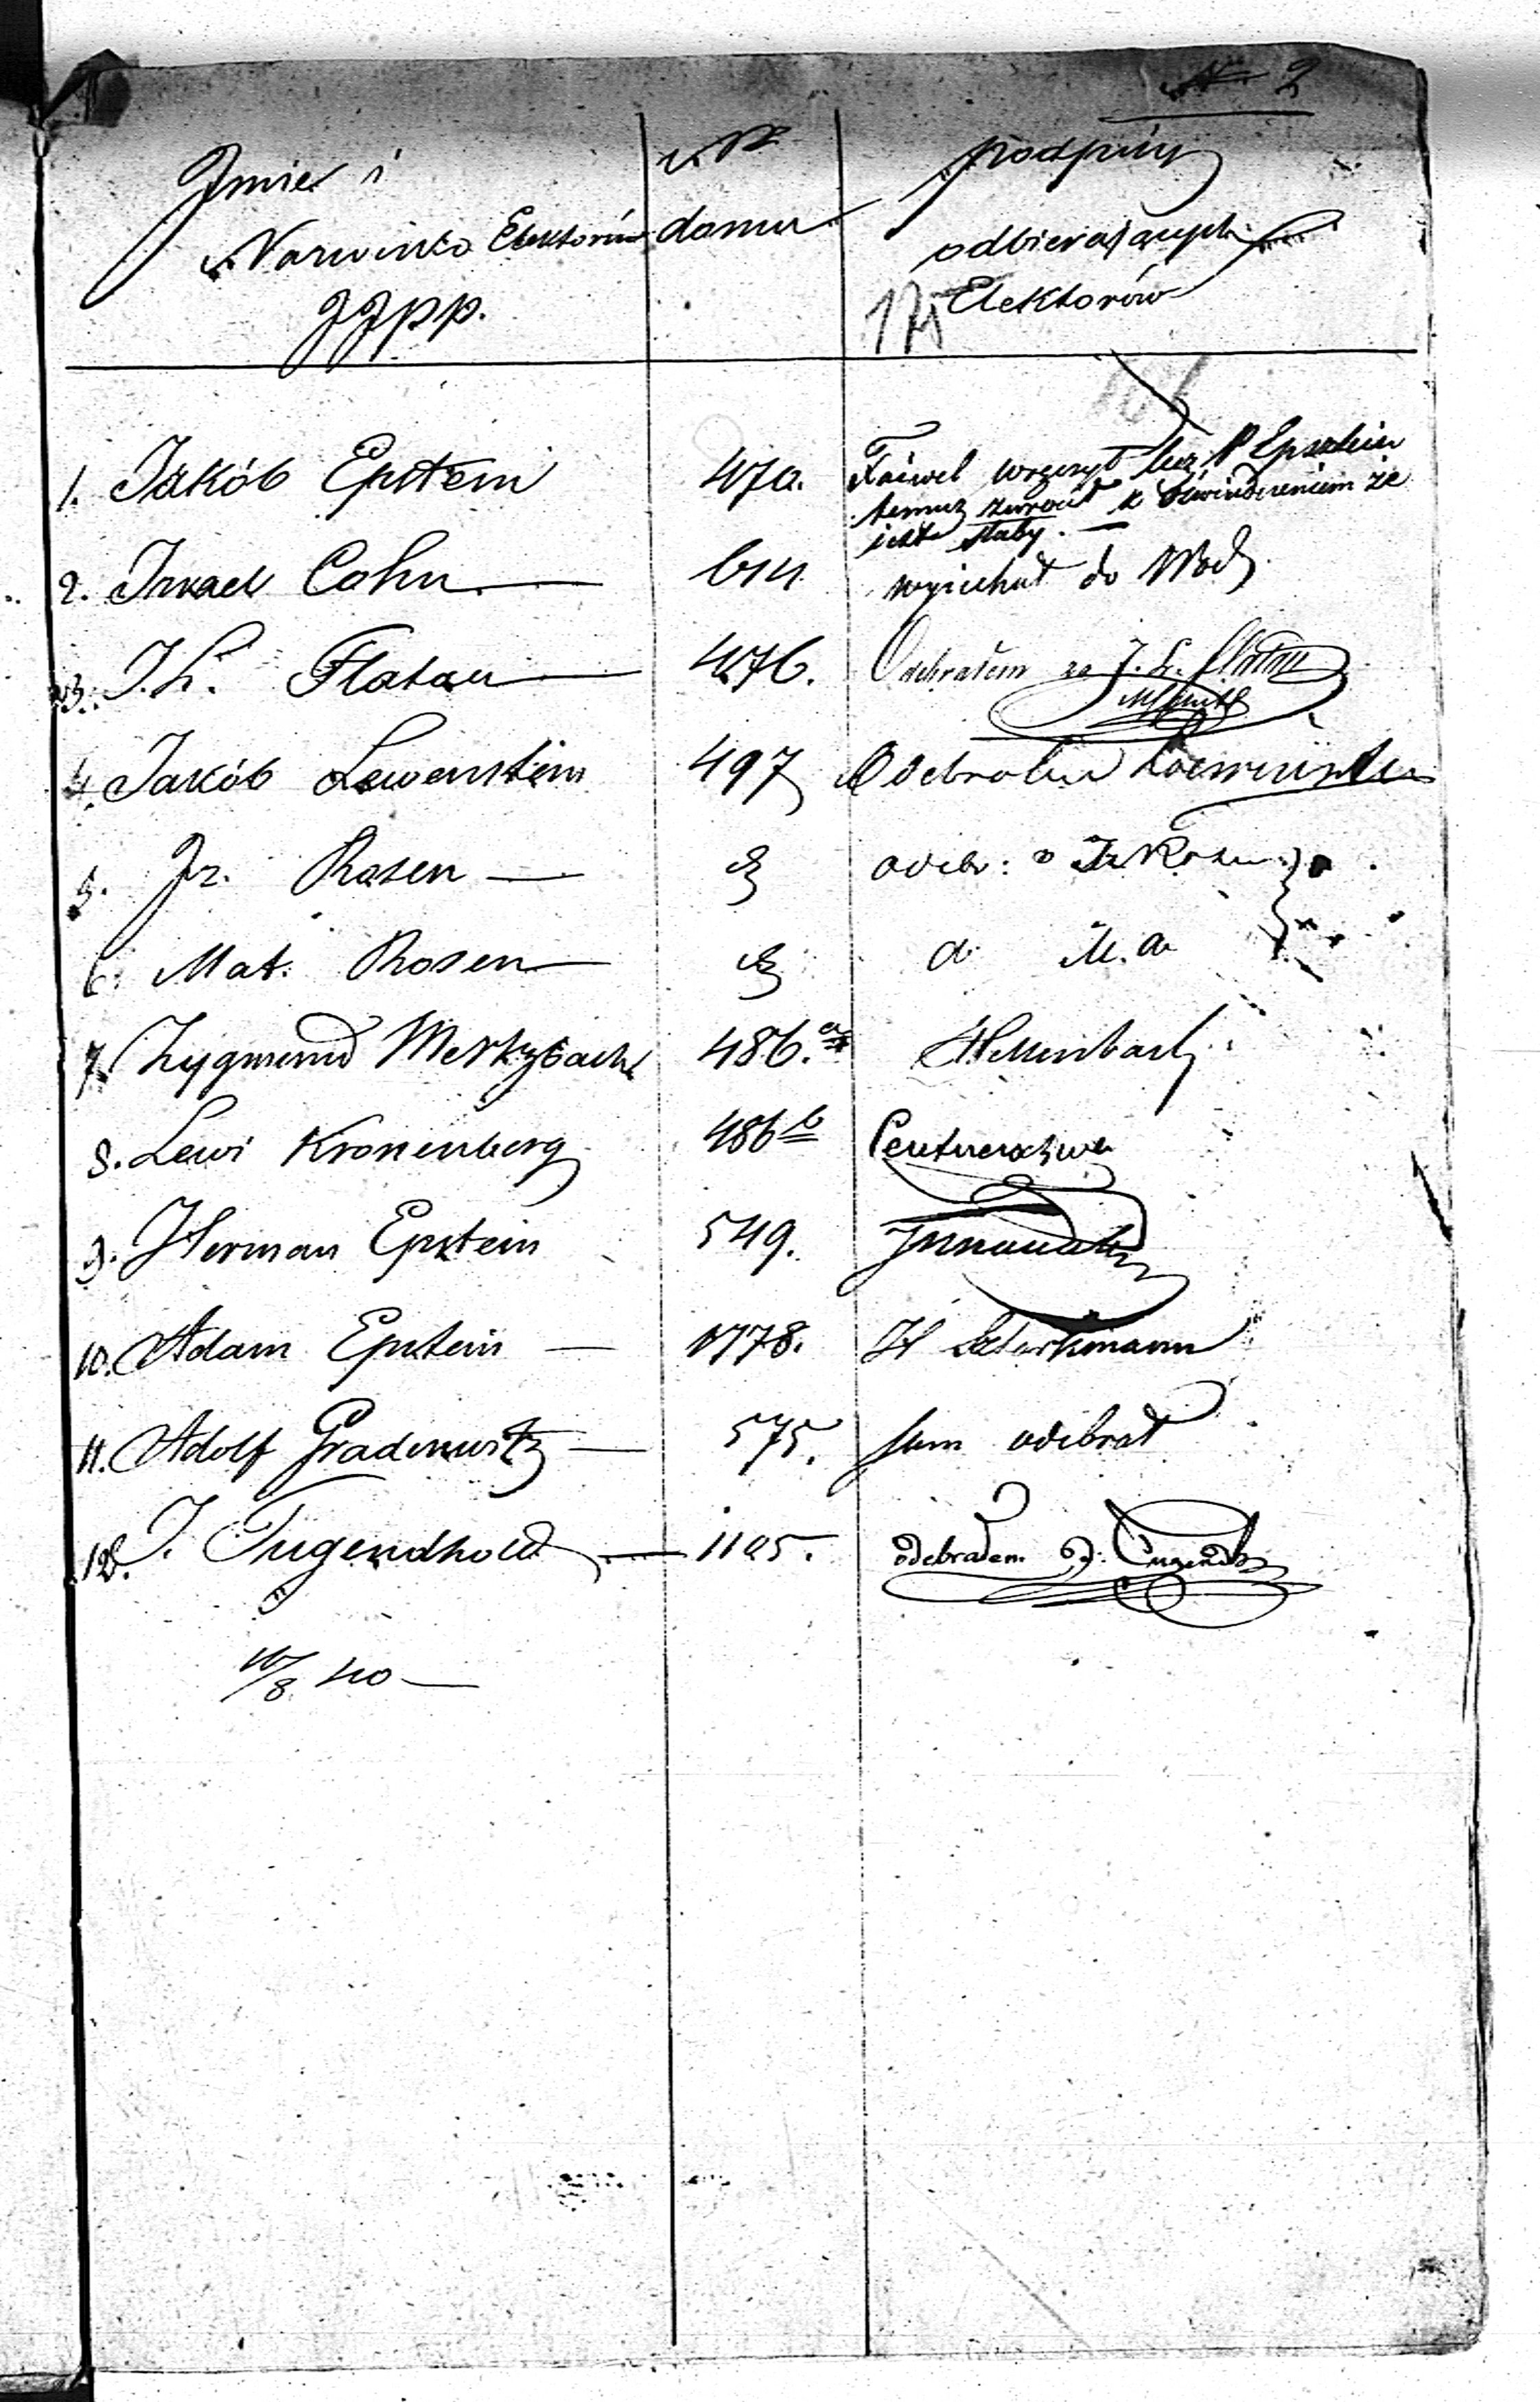 № 2
Imie i
Nazwisko Elektorów
JJPP.
№
domu
podpisy
odbierających
Elektorów
1. Jakób Epstein 470. Faiwel wręczył lecz P Epstein
temuz zwrócił z oświadczeniem że
jest słaby. —
2. Izrael Cohn — 614. wyjechał do Wód
3. J. L. Flatau — 476. Odebrałem za J. L. Flatau
4. Jakób Lewenstein 497 Odebrałem Loewenstein
5. Iz. Rosen — d odebr: Iz Rosen
6. Mat. Rosen — d d M. a
7. Zygmund Mertzbach 486.a
8. Lewi Kronenberg 486 b Centnerszwer
9. Herman Epstein 549.
10. Adam Epstein — 1778. H
11. Adolf Gradenwitz — 575. sam odebrał
12. J. Tugendhold — 1105. odebrałem J. Tugendhold
10/8 40 —